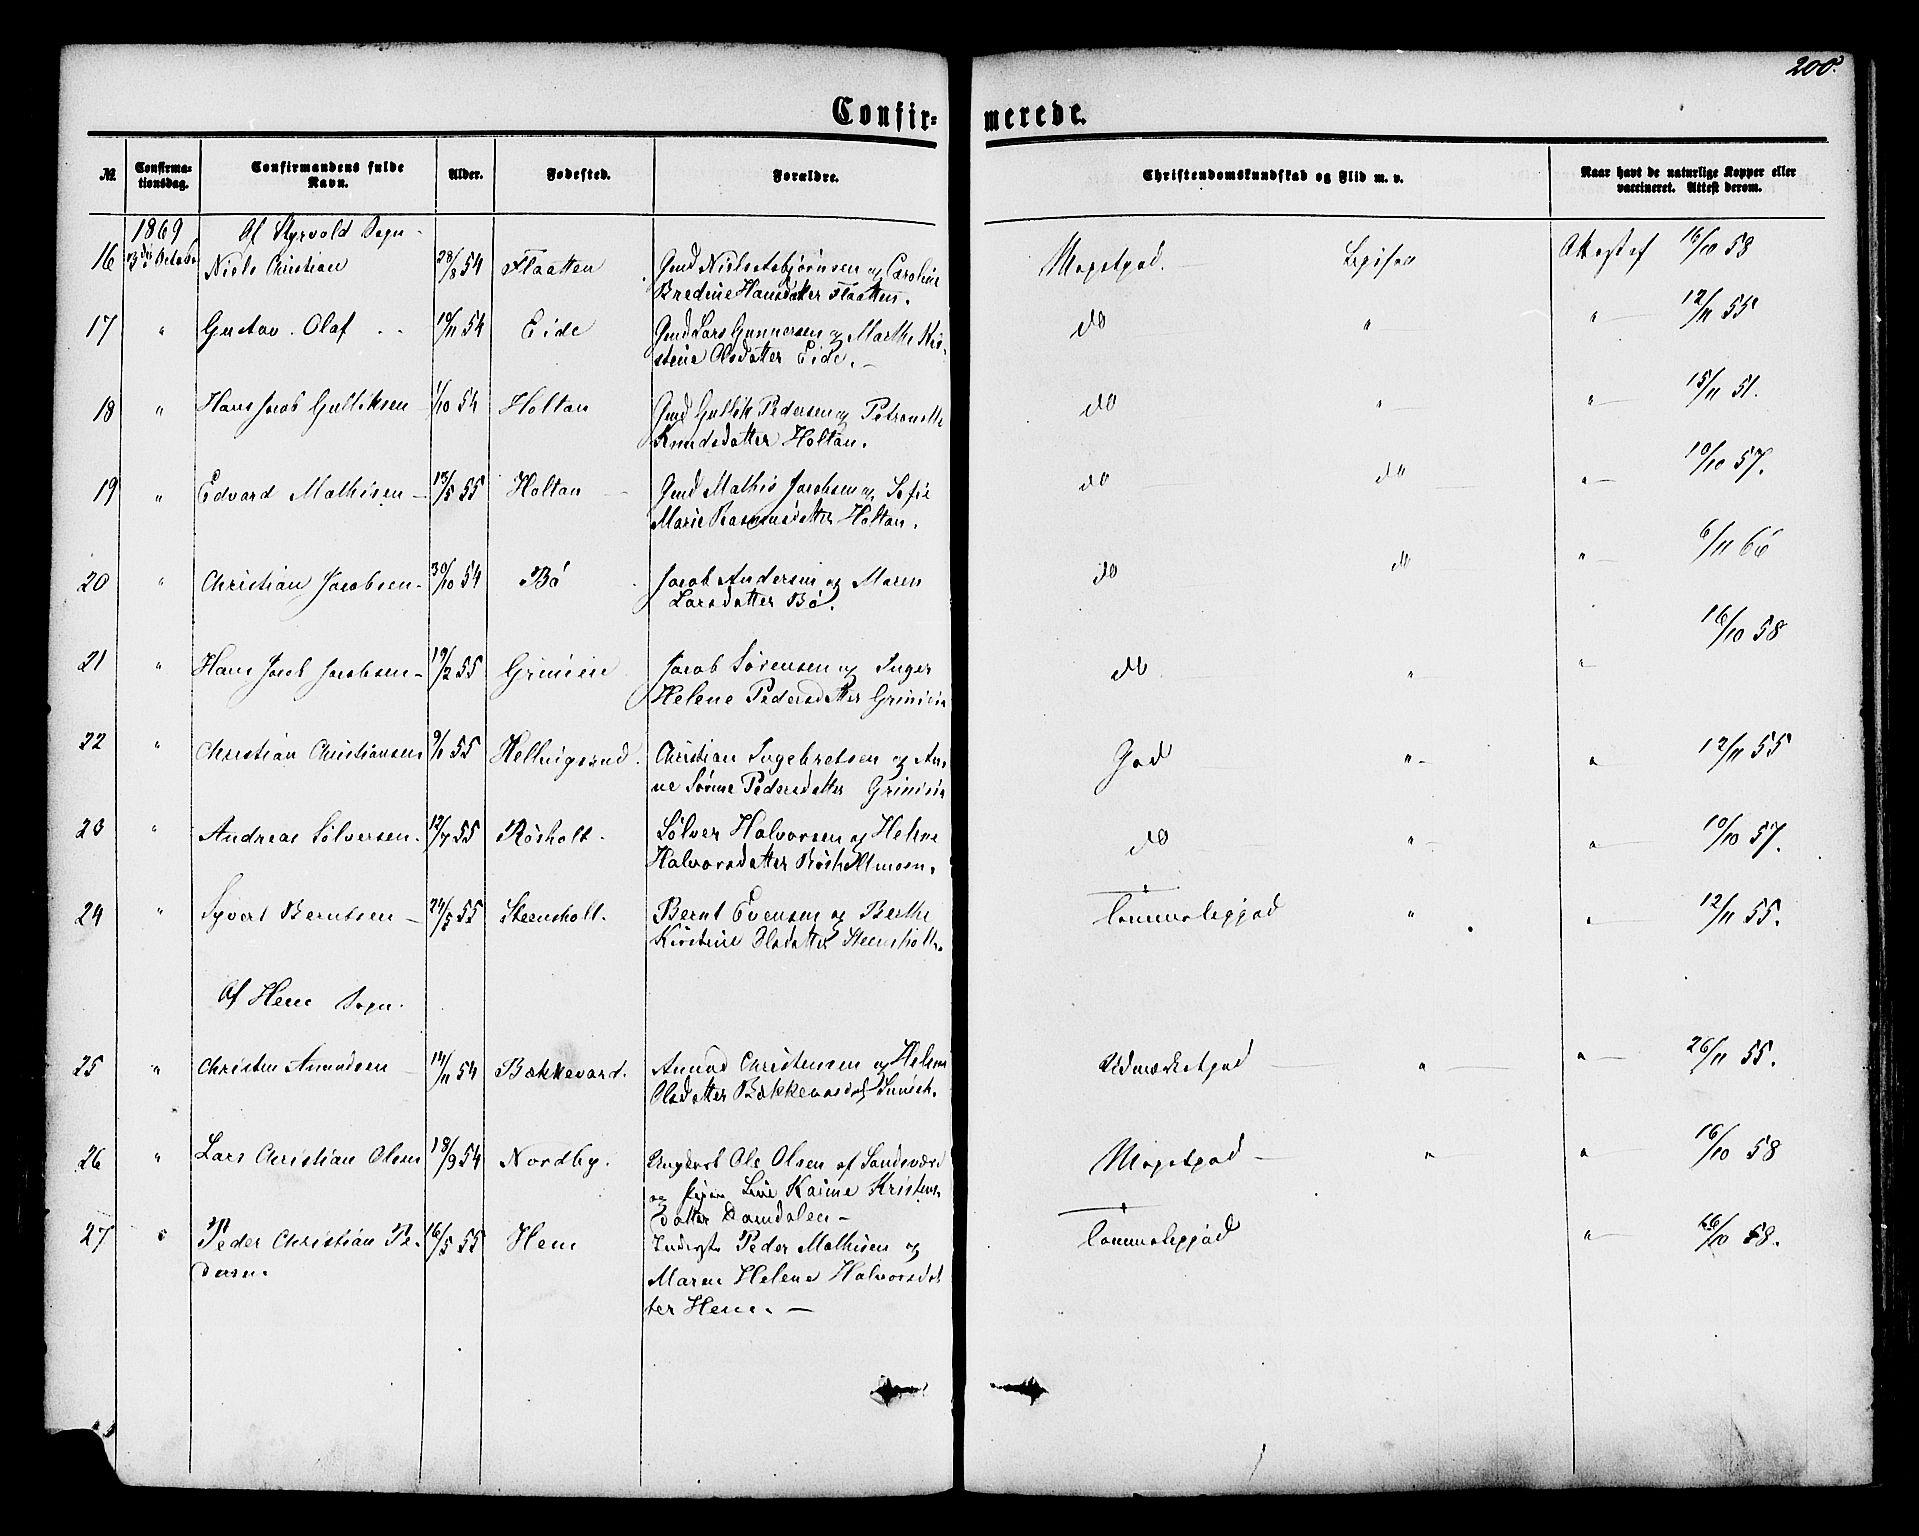 200.
Confir- merede.
№ Confirma- Confirmandens fulde Alder. Fødested. Forældre. Christendomskundskab og Flid m. v. Naar havt de naturlige Kopper eller
tionsdag. Navn. vaccineret. Attest derom.
1869 Af Styrvold Sogn
16 Niels Christian 28/8 54 Flaatten Gmd Niels Asbjørnsen og Caroline Meget god. Attest af 16/10 58
Bredine Hansdatter Flaatten.
17 " Gustav Olaf 10/11 54 Eide Gmd Lars Gunnersen og Marthe Kir- do " " 12/11 55
stine Olsdatter Eide. —
18 " Hans Jacob Gulliksen 1/10 54 Holtan Gmd Gullik Pedersen og Petronelle do " " 15/11 51.
Knudsdatter Holtan.
19 " Edvard Mathisen — 13/5 55 Holtan Gmd Mathis Jacobsen og Sofie do do " 10/10 57.
Marie Rasmusdatter Holtan.
20 " Christian Jacobsen 30/10 54 Bø Jacob Andersen og Maren do do " 6/11 66
Larsdatter Bø.
21 " Hans Jacob Jacobsen 19/2 55 Grinien Jacob Sørensen og Inger do " " 16/10 58
Helene Pedersdatter Grinien
22 " Christian Christiansen 9/1 55 Hellnigsrud. Christian Ingebretsen og An- God " " 12/11 55
ne Sørine Pedersdatter Grinien
23 " Andreas Sølversen. 12/7 55 Røsholt. Sølver Halvorsen og Helene do " " 10/10 57.
Halvorsdatter Røsholtmoen.
24 " Syvert Berntsen — 24/5 55 Steensholt. Bernt Evensen og Berthe Temmeligod " " 12/11 55.
Kirstine Olsdatter Steensholt.
Af Hem Sogn.
25 " Christen Amundsen 14/11 54 Bækkevard. Amund Christensen og Helene Udmærketgod " " 26/11 55.
Olsdatter
26 " Lars Christian Olsen 18/9 54 Nordby. Ungkarl Ole Olsen af Sandsværd Megetgod — " " 16/10 58
og Pigen Line Karine Kristens-
datter Damdalen —
27 " Peder Christian Pe- 16/5 55 Hem Inderst Peder Mathisen og Temmeligod " 16/10 58.
dersen. Maren Helene Halvorsdat
ter Hem. —